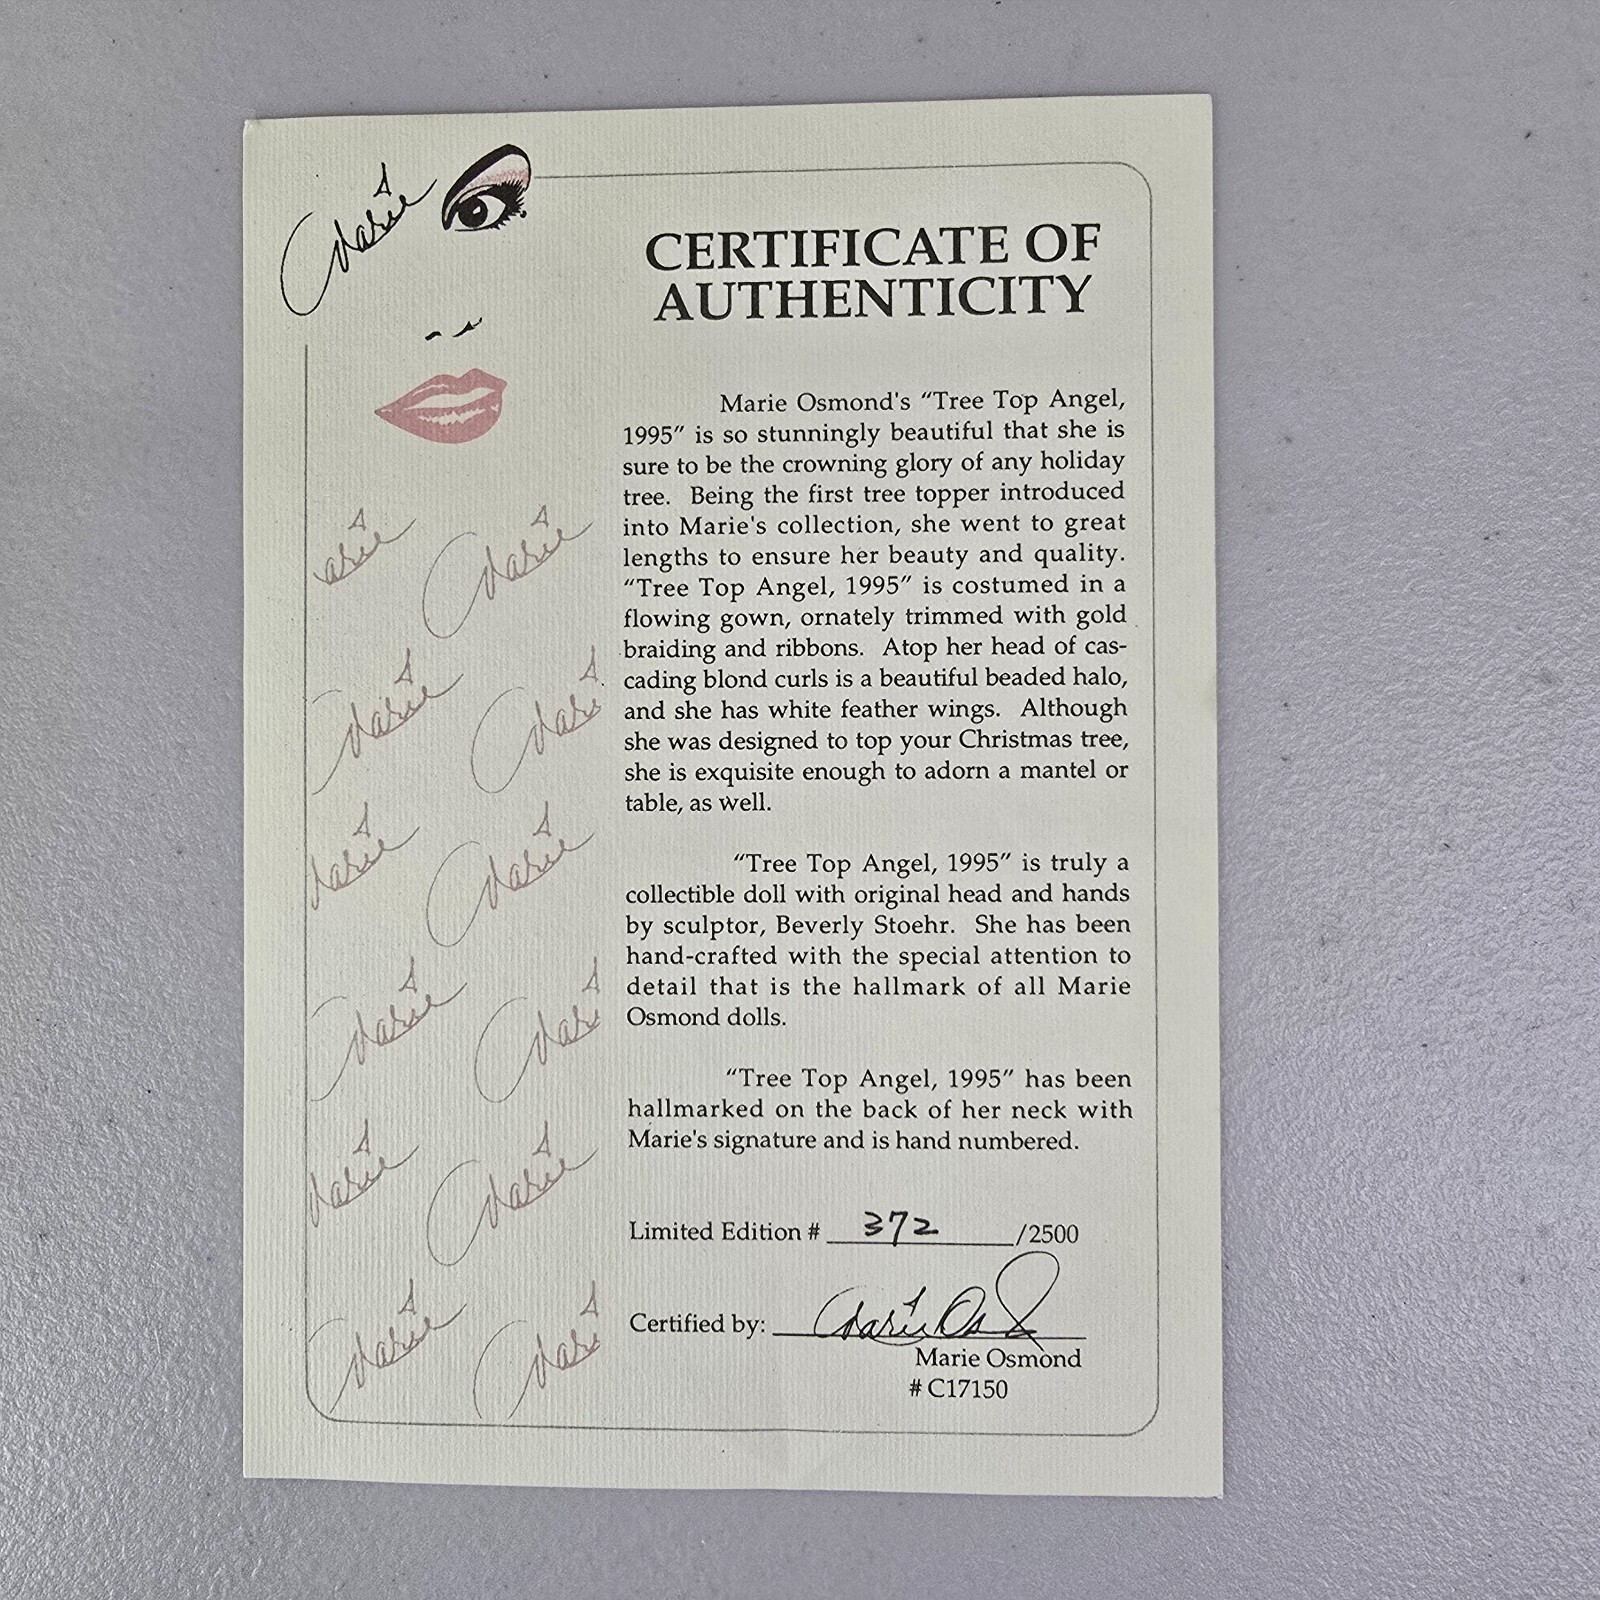 Marie
CERTIFICATE OF
AUTHENTICITY
Marie Osmond's “Tree Top Angel,
1995” is so stunningly beautiful that she is
sure to be the crowning glory of any holiday
tree. Being the first tree topper introduced
into Marie's collection, she went to great
lengths to ensure her beauty and quality.
“Tree Top Angel, 1995” is costumed in a
flowing gown, ornately trimmed with gold
braiding and ribbons. Atop her head of cas-
cading blond curls is a beautiful beaded halo,
and she has white feather wings. Although
she was designed to top your Christmas tree,
she is exquisite enough to adorn a mantel or
table, as well.
“Tree Top Angel, 1995” is truly a
collectible doll with original head and hands
by sculptor, Beverly Stoehr. She has been
hand-crafted with the special attention to
detail that is the hallmark of all Marie
Osmond dolls.
“Tree Top Angel, 1995” has been
hallmarked on the back of her neck with
Marie's signature and is hand numbered.
Limited Edition # 372 /2500
Certified by: Marie Osmond
Marie Osmond
# C17150
arie Marie
Marie Mari
Marie Marie
Marie Mari
Marie Marie
Marie Mari